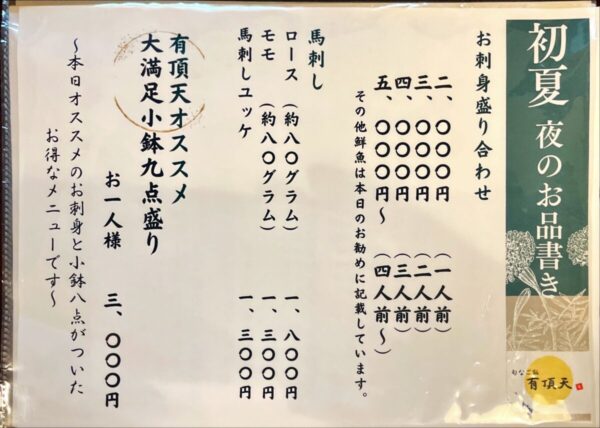 初夏 夜のお品書き
旬なご飯
有頂天
お刺身盛り合わせ
二、〇〇〇円 (一人前)
三、〇〇〇円 (二人前)
四、〇〇〇円 (三人前)
五、〇〇〇円～ (四人前～)
その他鮮魚は本日のお勧めに記載しています。
馬刺し
ロース (約八〇グラム) 一、八〇〇円
モモ (約八〇グラム) 一、三〇〇円
馬刺しユッケ 一、三〇〇円
有頂天オススメ
大満足小鉢九点盛り
お一人様 三、〇〇〇円
～本日オススメのお刺身と小鉢八点がついた
お得なメニューです～